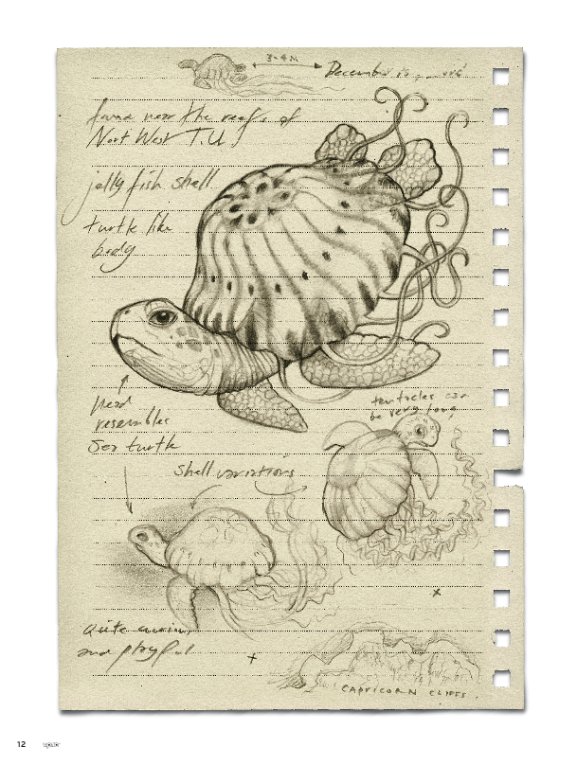 3-4 M
December
found near the reefs of
Nort West T.U
jelly fish shell
turtle like
body
head
resembles
Sea turtle
tentacles can
be very long
shell variations
quite curious
and playful
CAPRICORN CLIFFS
12